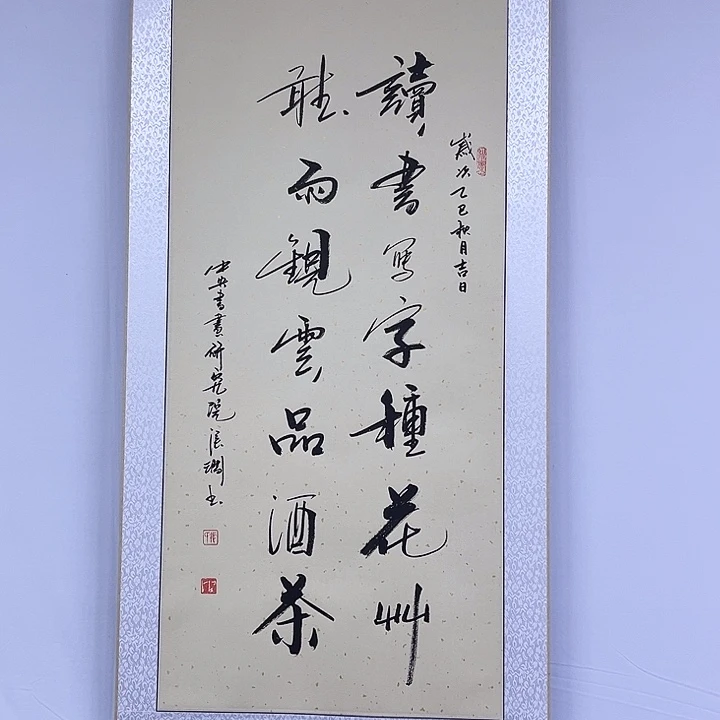 歲次乙巳秋月吉日
讀書写字種花艸
聽雨觀雲品酒茶
中央書畫研究院張澗书